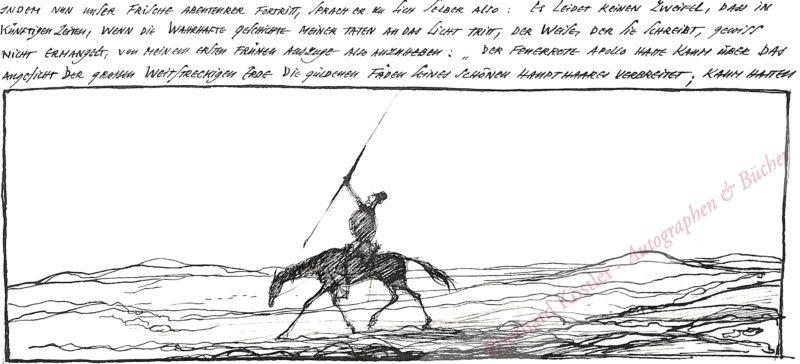 INDEM NUN UNSER FRISCHE ABENTEURER FORTRITT, SPRACH ER ZU SICH SELBER ALSO: ES LEIDET KEINEN ZWEIFEL, DASS IN
KÜNFTIGEN ZEITEN, WENN DIE WAHRHAFTE GESCHICHTE MEINER TATEN AN DAS LICHT TRITT, DER WEISE, DER SIE SCHREIBT, GEWISS
NICHT ERMANGELT, VON MEINEM ERSTEN FRÜHEN AUSZUGE ALSO ANZUHEBEN: „DER FEUERROTE APOLLO HATTE KAUM ÜBER DAS
ANGESICHT DER GROSSEN WEITSTRECKIGEN ERDE DIE GÜLDENEN FÄDEN SEINES SCHÖNEN HAUPTHAARES VERBREITET; KAUM HATTEN
Eberhard Köstler - Autographen & Bücher